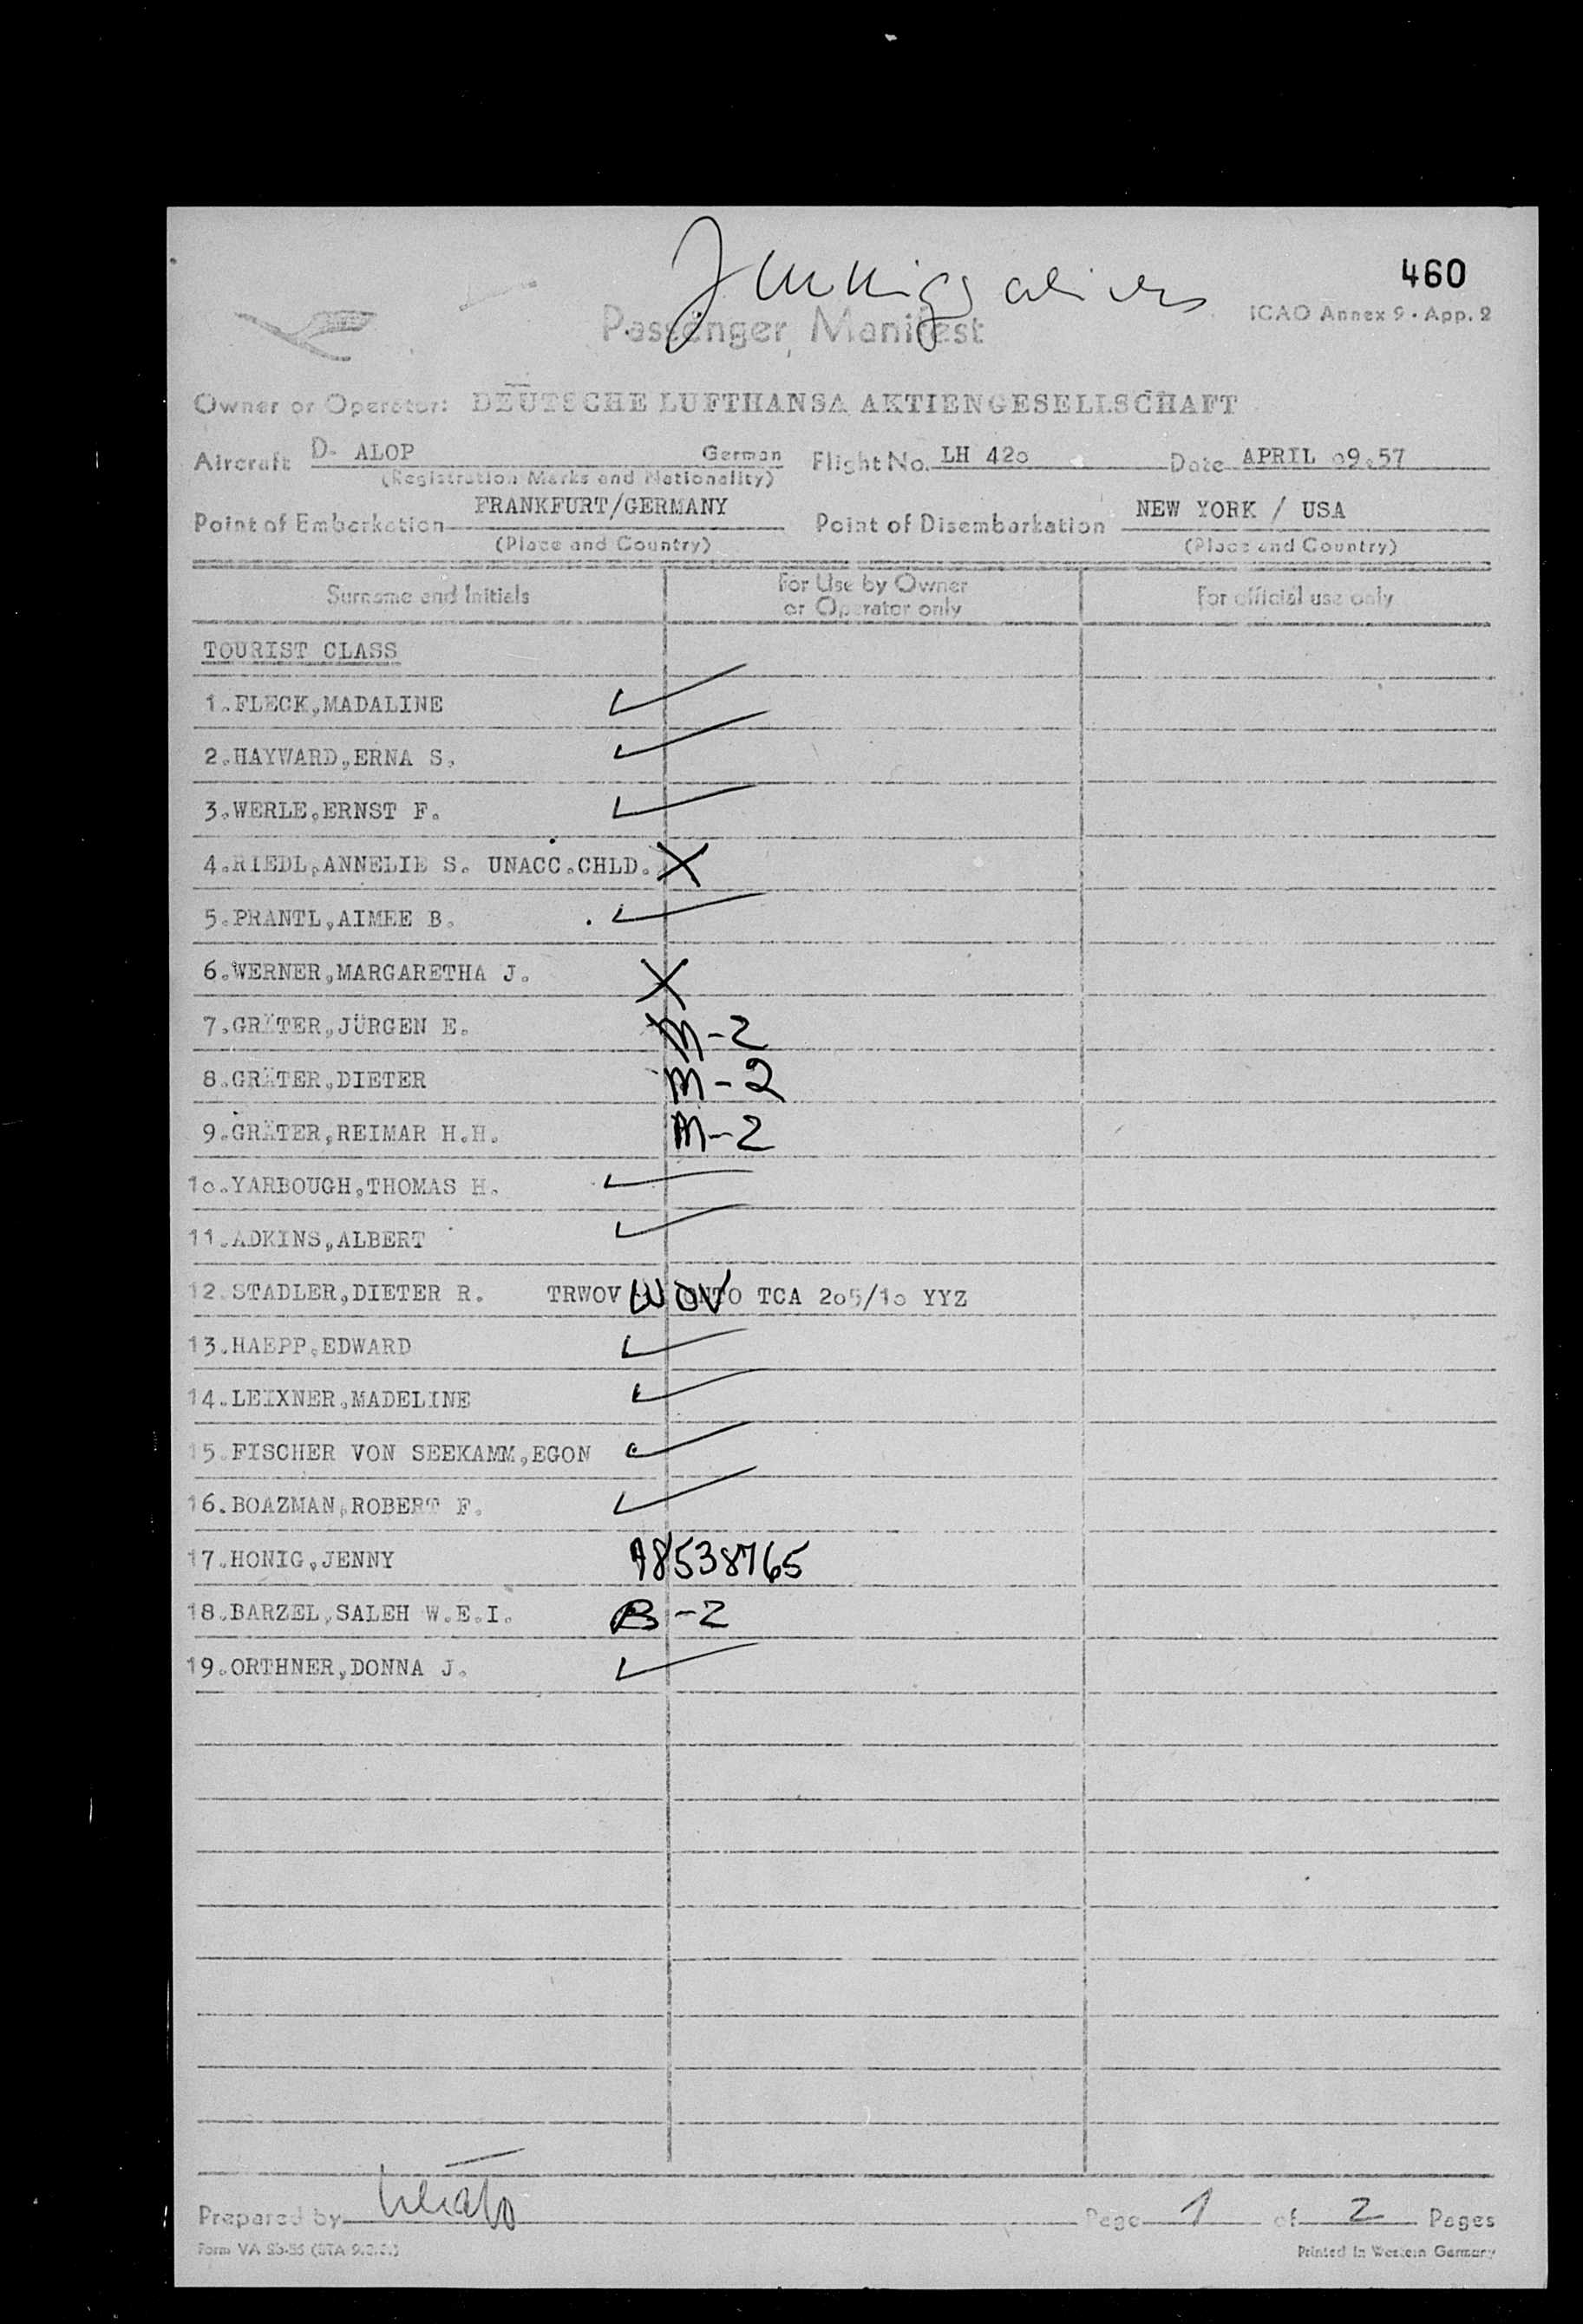 Immig aliens
460
Passenger Manifest
ICAO Annex 9 · App. 2
Owner or Operator: DEUTSCHE LUFTHANSA AKTIENGESELLSCHAFT
Aircraft D- ALOP German Flight No. LH 42o Date APRIL o9.57
(Registration Marks and Nationality)
Point of Embarkation FRANKFURT/GERMANY Point of Disembarkation NEW YORK / USA
(Place and Country) (Place and Country)
Surname and Initials For Use by Owner or Operator only For official use only
TOURIST CLASS
1.FLECK,MADALINE ✓
2.HAYWARD,ERNA S. ✓
3.WERLE,ERNST F. ✓
4.RIEDL,ANNELIE S. UNACC.CHLD. X
5.PRANTL,AIMEE B. ✓
6.WERNER,MARGARETHA J. X
7.GRÄTER,JÜRGEN E. M-2
8.GRÄTER,DIETER M-2
9.GRÄTER,REIMAR H.H. M-2
1o.YARBOUGH,THOMAS H. ✓
11.ADKINS,ALBERT ✓
12.STADLER,DIETER R. TRWOV WOV ONTO TCA 2o5/1o YYZ
13.HAEPP,EDWARD ✓
14.LEIXNER,MADELINE ✓
15.FISCHER VON SEEKAMM,EGON ✓
16.BOAZMAN,ROBERT F. ✓
17.HONIG,JENNY A8538765
18.BARZEL,SALEH W.E.I. B-2
19.ORTHNER,DONNA J. ✓
Prepared by Page 1 of 2 Pages
Form VA Printed in Western Germany